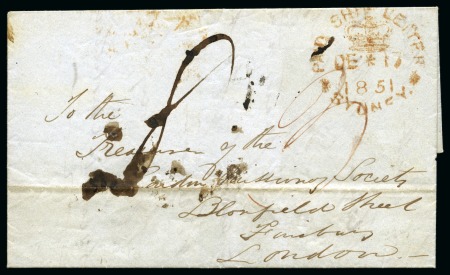 PAID SHIP LETTER
DE * 17
1851
* SYDNEY *
To the
Treasurer of the
London Missionary Society
Blomfield Street
Finsbury
London